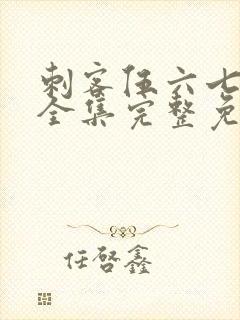 刺客伍六七
全集完整免
任啓鑫